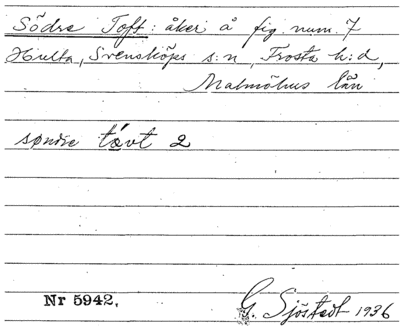 Södra Toft: åker å fig. num. 7
Hulta, Svensköps s:n, Frosta h:d,
Malmöhus län
søndre tåvt 2
Nr 5942.
G. Sjöstedt 1936